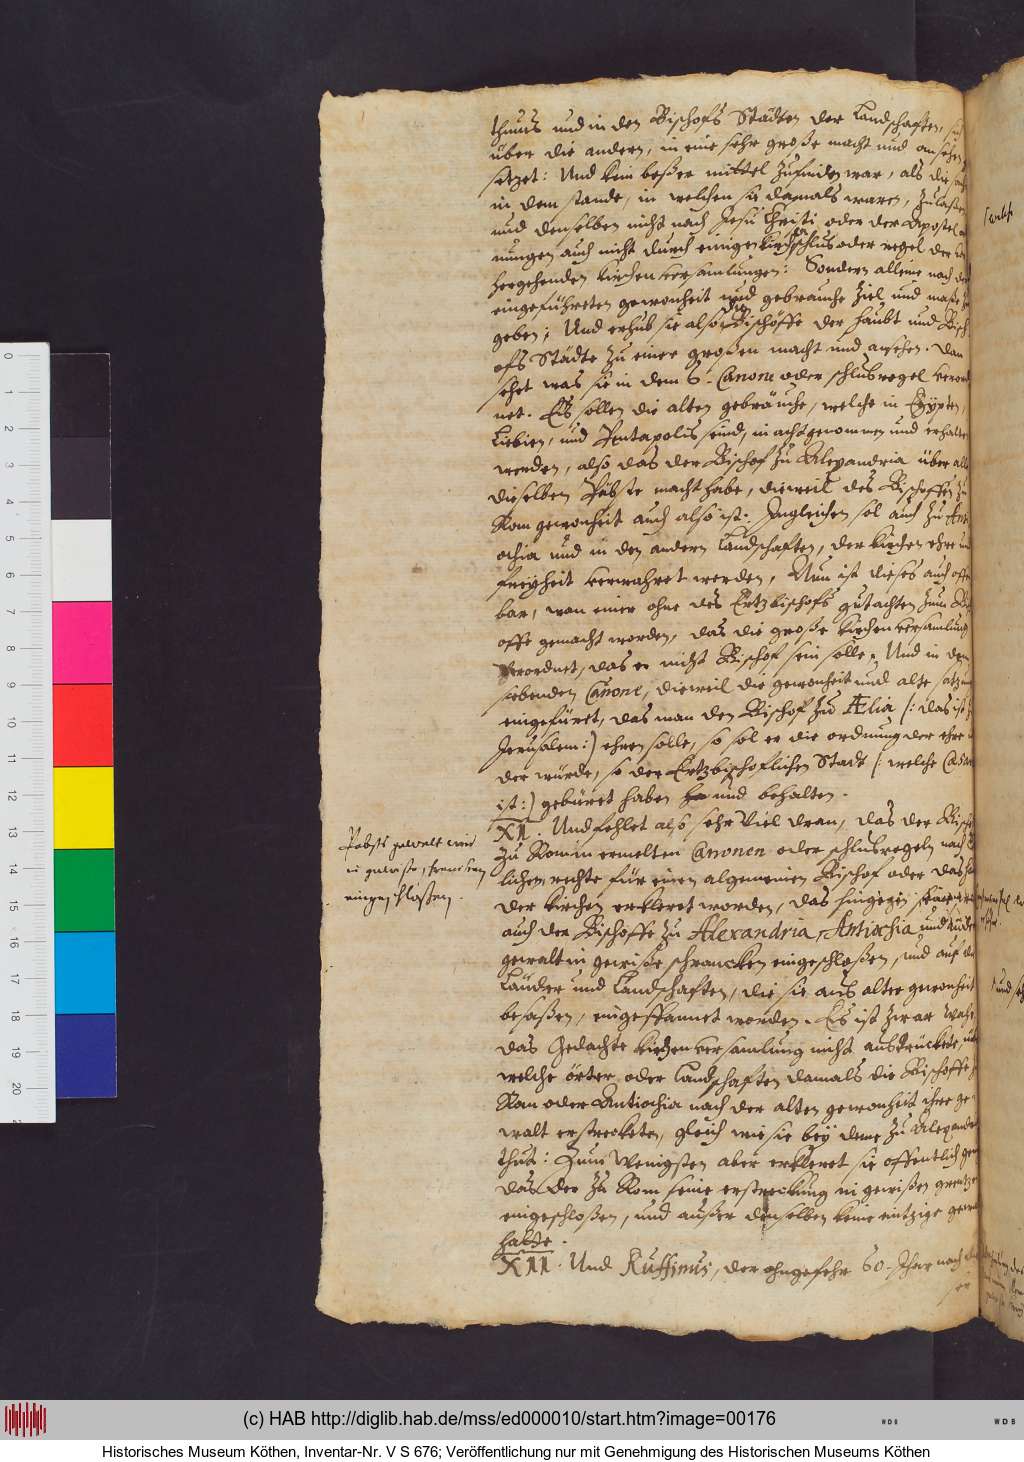 thums und in den Bischofs Städten der Landschafften, sich
über die andern, in eine sehr große macht und ansehen
setzet: Und kein beßer mittel zufinden war, als die
in dem stande, in welchen sie damals waren, zulaßen
und denselben nicht nach Jesu Christi oder der Apostel
nungen auch nicht durch einigen kirchenschlus oder regel der
hergehenden kirchenversamlungen: Sondern alleine nach der
eingeführeten gewonheit und gebrauche ziel und maße zu
geben; Und erhub sie also die Bischöffe der haubt und Bisch-
ofs Städte zu einer großen macht und ansehen. Dan
sehet was sie in dem 6. Canone oder schlusregel verord-
net. Es sollen die alten gebräuche, welche in Egypten,
Liebien, und Pentapolis seind, in acht genommen und erhalten
werden, also das der Bischof zu Alexandria über alle
dieselben Päbste macht habe, dieweil des Bischoffen zu
Rom gewonheit auch also ist. Ingleichen sol auch zu Anti-
ochia und in den andern Landschafften, der kirchen ehre und
freyheit verwahret werden, Nun ist dieses auch offen-
bar, wan einer ohne des Ertzbischofs gutachten zum Bisch-
offe gemacht worden, das die große kirchenversamlung
verordnet, das er nicht Bischof sein solle. Und in dem
siebenden Canone, dieweil die gewonheit und alte satzung
eingefüret, das man den Bischof zu Ælia (: das ist zu
Jerusalem:) ehren solle, so sol er die ordnung der ehre
der würde, so der Ertzbischoflichen Stadt (: welche
ist:) gebüret haben und behalten.
XI. Und fehlet also sehr viel dran, das der Bischof
zu Rom in ermelten Canonen oder schlusregeln nach
lichen rechte für einen algemeinen Bischof oder das haubt
der kirchen erkleret worden, das hingegen seine
auch der Bischoffe zu Alexandria, Antiochia und ander
gewalt in gewiße schrancken eingeschloßen, und auf die
Länder und Landschafften, die sie aus alter gewonheit
besaßen, eingespannet worden. Es ist zwar wahr,
das Gedachte kirchenversamlung nicht ausdrückete,
welche örter oder Landschafften damals die Bischoffe zu
Rom oder Antiochia nach der alten gewonheit ihre ge-
walt erstrecketen, gleich wie sie bey deme zu Alexandria
thut: Zum wenigsten aber erkleret sie offentlich
das der zu Rom seine erstreckung in gewißen grentzen
eingeschloßen, und außer denselben keine eintzige gewalt
hatte.
XII. Und Ruffinus, der ohngefehr 60. Jhar nach
Pabsts gewalt wird
in gewiße schrancken
eingeschloßen.
0
1
2
3
4
5
6
7
8
9
10
11
12
13
14
15
16
17
18
19
20
(c) HAB http://diglib.hab.de/mss/ed000010/start.htm?image=00176
WDB
WDB
Historisches Museum Köthen, Inventar-Nr. V S 676; Veröffentlichung nur mit Genehmigung des Historischen Museums Köthen